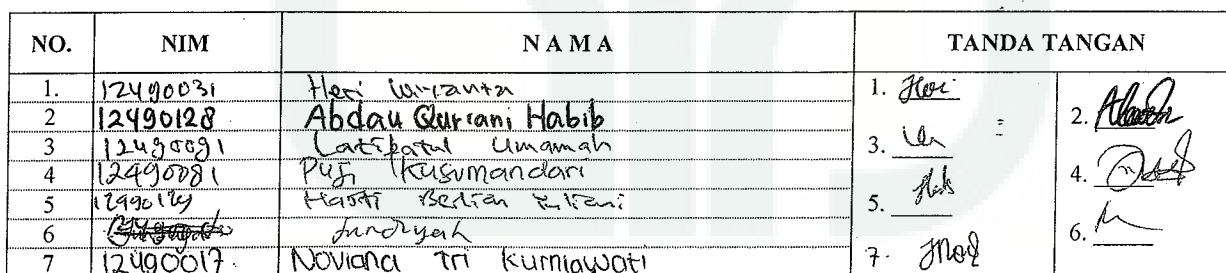 NO. NIM NAMA TANDA TANGAN
1. 12490031 Heri Wiranta 1. Heri
2 12490128 Abdau Qurrani Habib 2.
3 12490091 Latifatul Umamah 3.
4 12490081 Puji Kusumandari 4.
5 12490129 Hasti Berlian Yuliani 5.
6 6.
7 12490017 Noviana Tri Kurniawati 7.